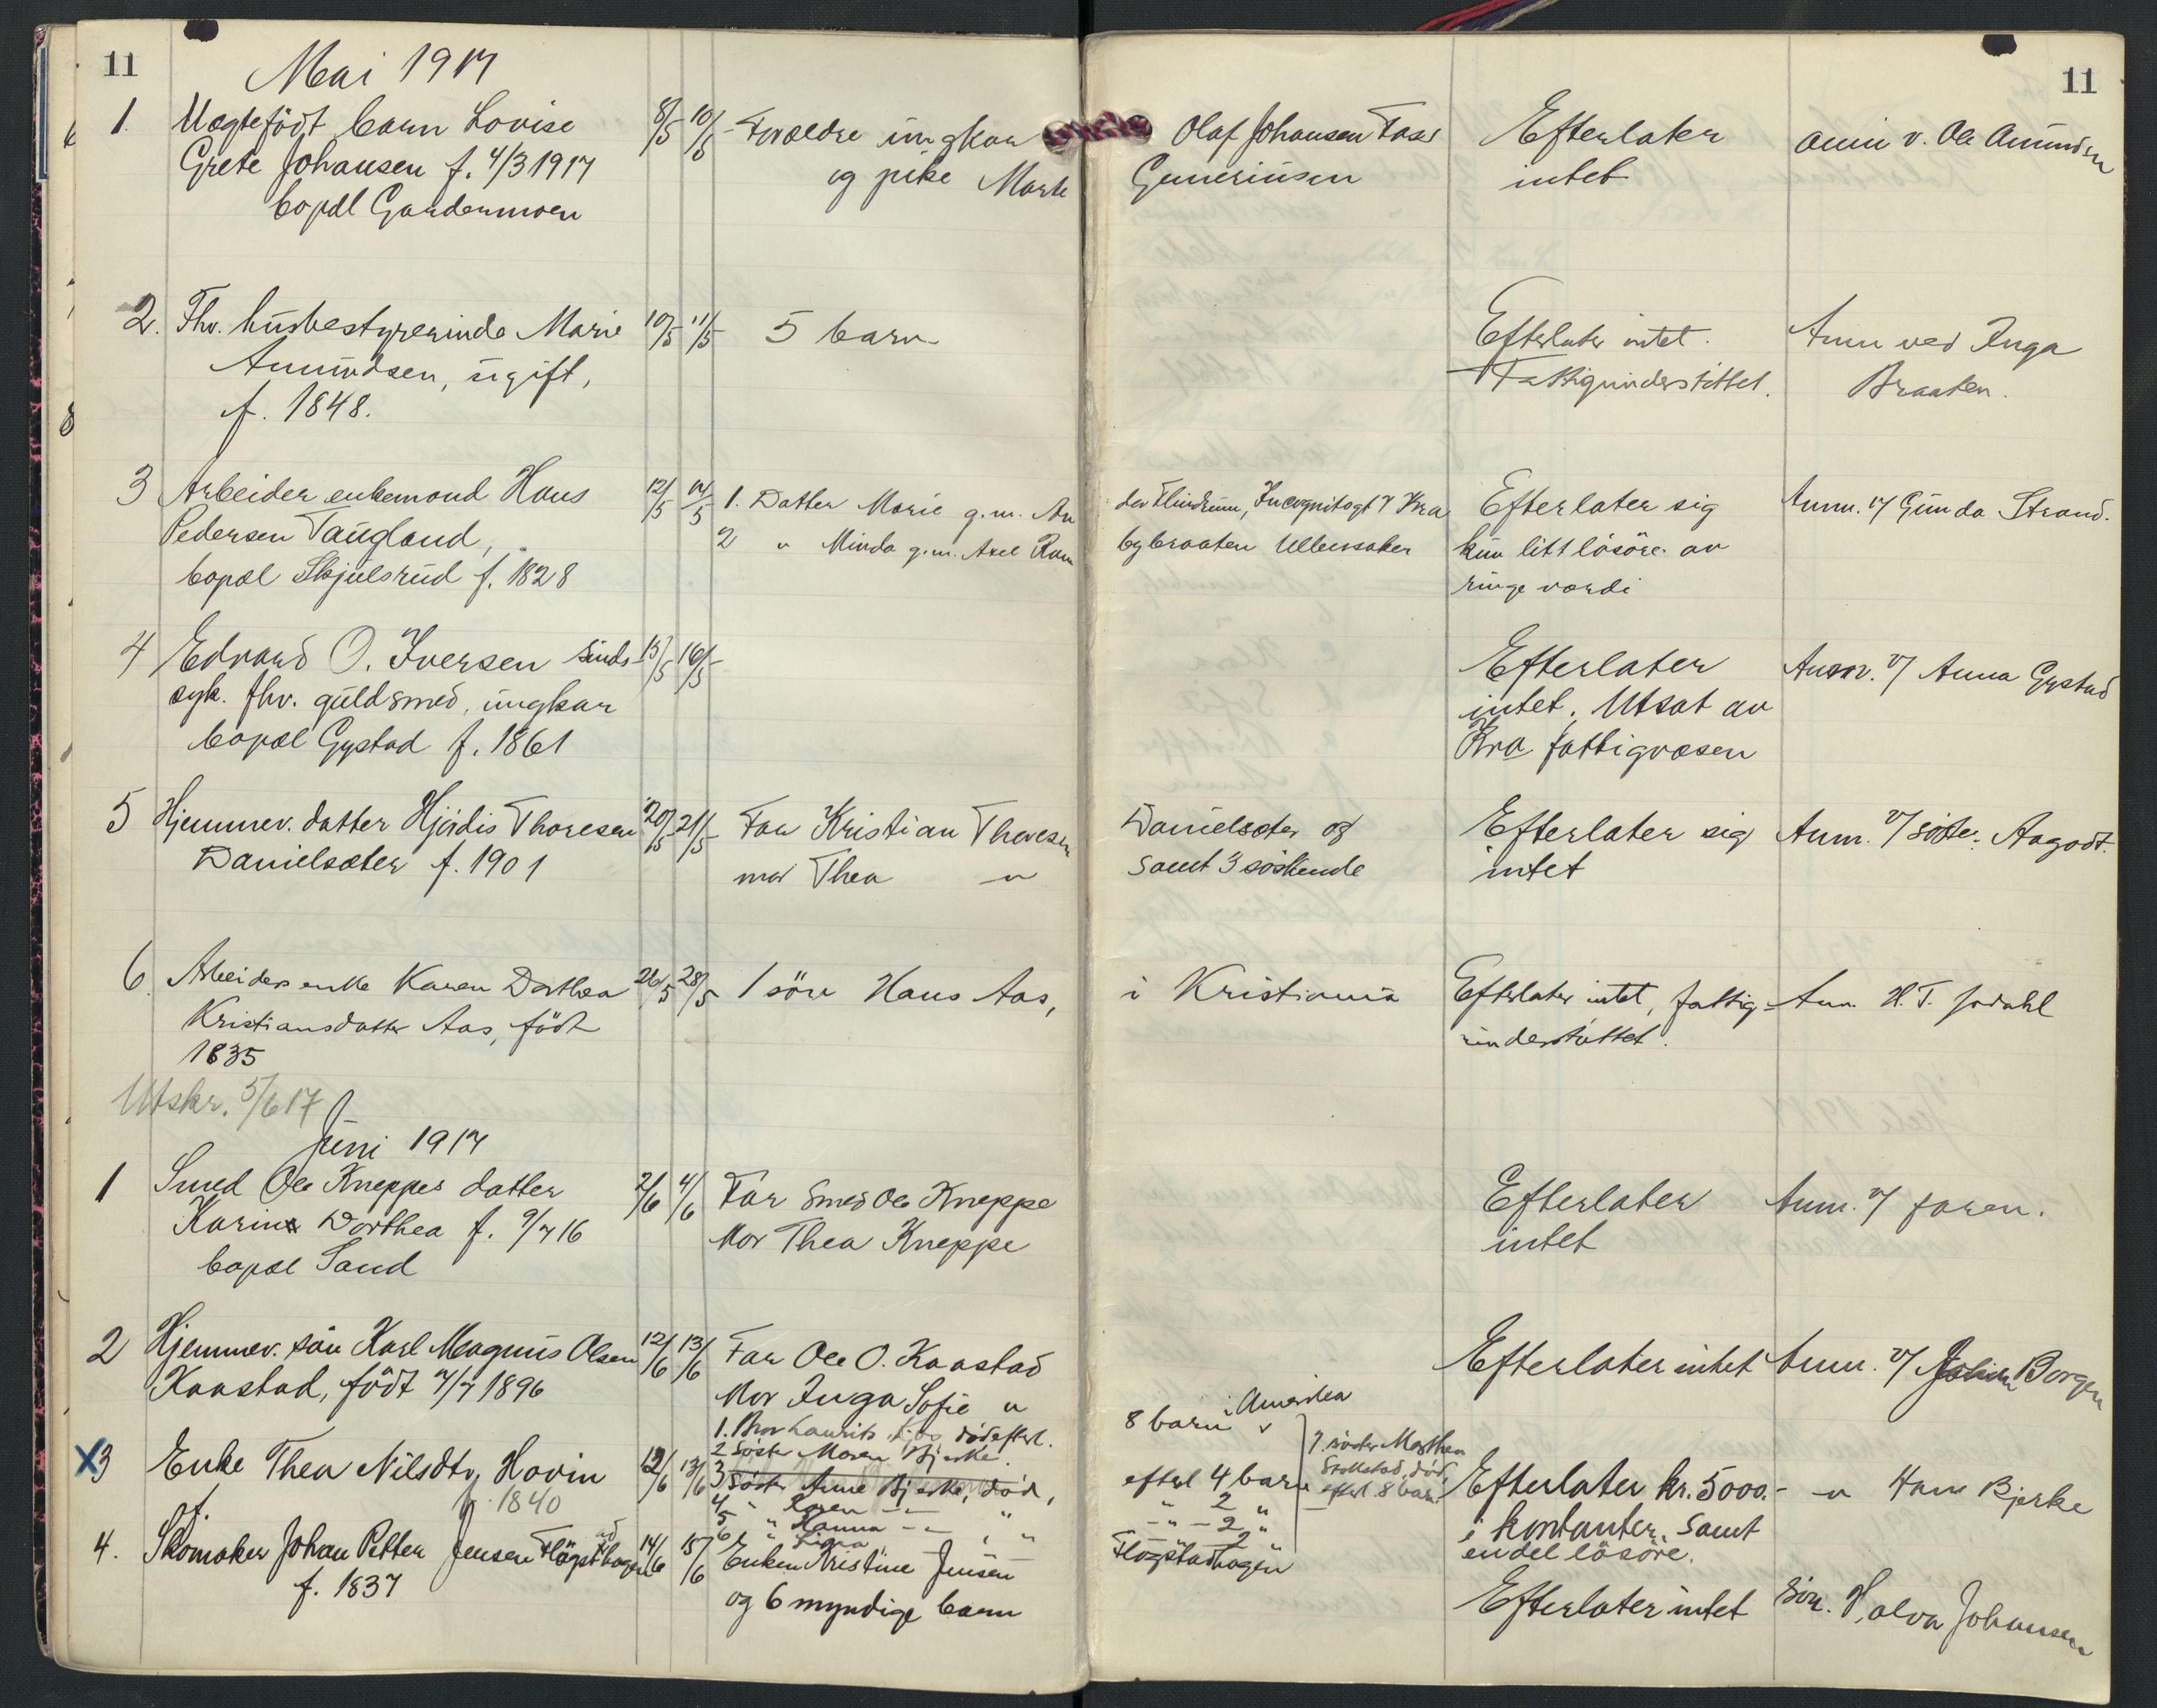 11
Mai 1917
1. Uegtefödt barn Lovise 8/5 10/5 Foreldre ungkar Olaf Johansen Efterlater anm v. Ole Amundsen
Grete Johansen f. 4/3 1917 og pike Marte Gunerinsen intet
bopæl Gardermoen
11
2. Fhv. husbestyrerinde Marie 10/5 11/5 5 barn Efterlater intet. Anm ved Inga
Amundsen, ugift, Fattigunderstöttet. Braaten.
f. 1848.
3 Arbeider enkemand Hans 12/5 14/5 1. Datter Marie g.m. Efterlater sig Anm. v/ Gunda Strand.
Pedersen Taugland, 2 " Minda g.m. Axel bybraaten Ullensaker kun litt lösöre av
bopæl Skjulsrud f. 1828 ringe værdi
4 Edvard O. Iversen sinds- 15/5 16/5 Efterlater Anm. v/ Anna Gystad
syk. fhv. guldsmed, ungkar intet. Utsat av
bopæl Gystad f. 1861 Kra fattigvæsen
5 Hjemmev. datter Hjördis Thoresen 20/5 21/5 Far Kristian Thoresen Danielsæter og Efterlater sig Anm. v/ söster Aagodt.
Danielsæter f. 1901 mor Thea " samt 3 söskende intet
6. Arbeiderenke Karen Dorthea 26/5 28/5 1 sön Hans Aas, i Kristiania Efterlater intet, fattig- Anm. H. T. Jodahl
Kristiansdatter Aas, født understöttet.
1835
Utskr. 5/6 17
Juni 1917
1 Smed Ole Kneppes datter 2/6 4/6 Far Smed Ole Kneppe Efterlater Anm. v/ faren.
Karin Dorthea f. 9/7 16 Mor Thea Kneppe intet
bopæl Sand
2 Hjemmev. sön Karl Magnus Olsen 12/6 13/6 Far Ole O. Kaastad Efterlater intet Anm. v/ Borgen
Kaastad, født 4/7 1896 Mor Inga Sofie "
1. Bror Laurits död efterl. 8 barn i Amerika
2 Söster Maren Bjerke. 7. söster Marthea
X3 Enke Thea Nilsdtr. Hovin 12/6 13/6 3 Söster Anne Bjerke, död, efterl 4 barn Stokstad, död, Efterlater kr. 5000.- " Hans Bjerke
f. 1840 4 " " 2 " efterl. 8 barn i kontanter. Samt
5 " Hanna " - 2 " endel lösöre.
6 " " 2 "
4. Skomaker Johan Petter Jensen Flögstadhagen 14/6 15/6 Enken Kristine Jensen Flogstadhagen
f. 1837 og 6 myndige barn Efterlater intet Sön. Halvor Johansen